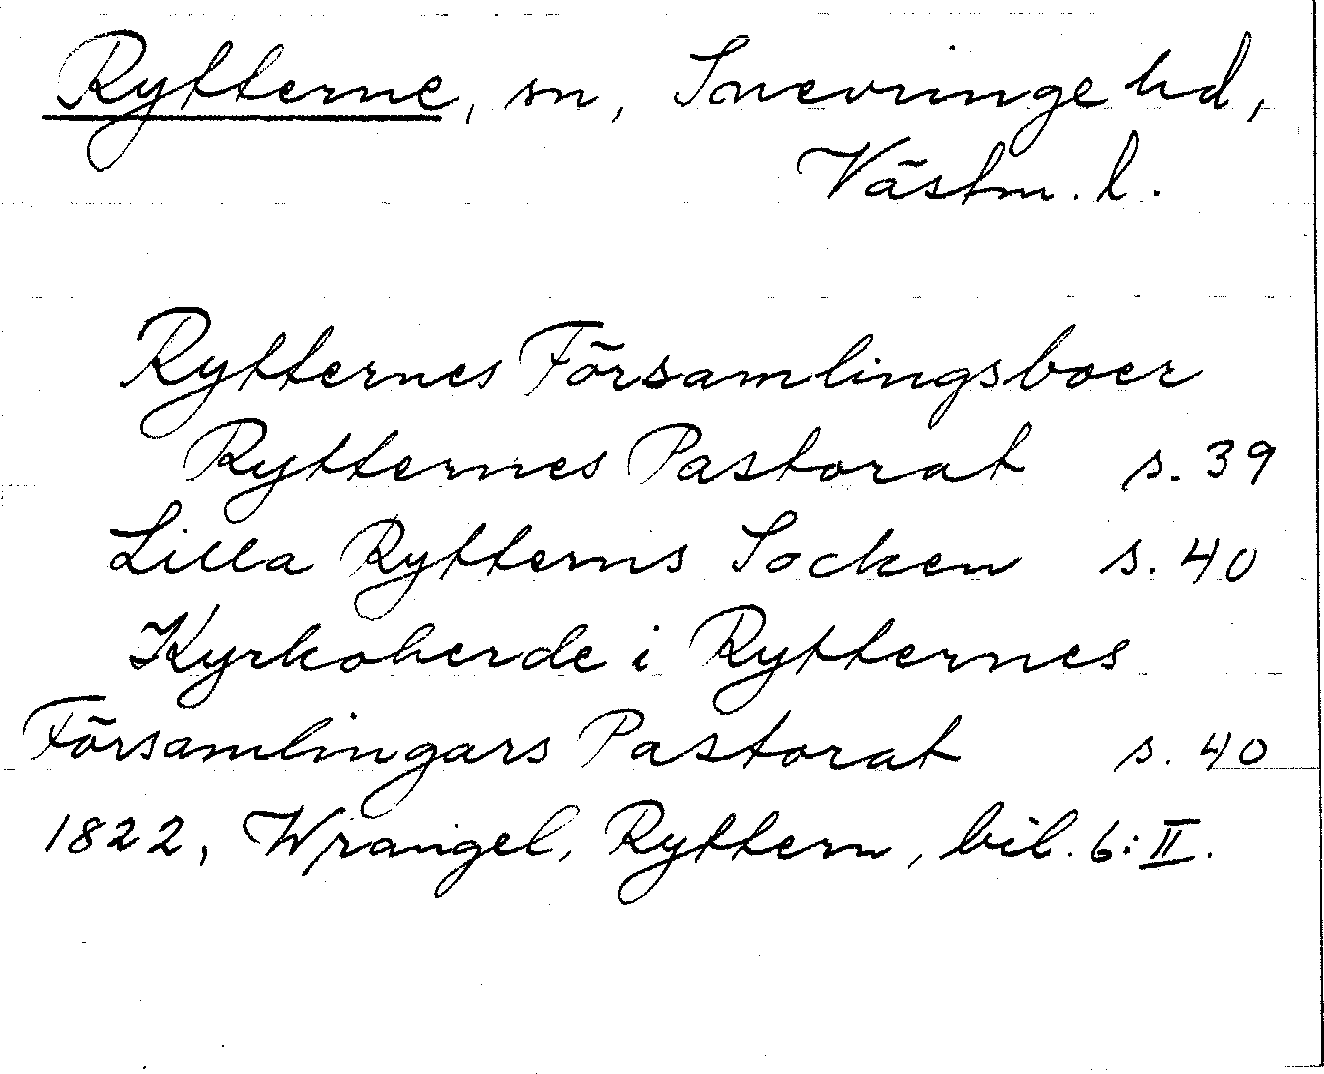 Rytterne, sn, Snevringe hd,
Västm. l.
Rytternes Församlingsboer
Rytternes Pastorat s. 39
Lilla Rytterns Socken s. 40
Kyrkoherde i Rytternes
Församlingars Pastorat s. 40
1822, Wrangel, Ryttern, bil. 6:II.